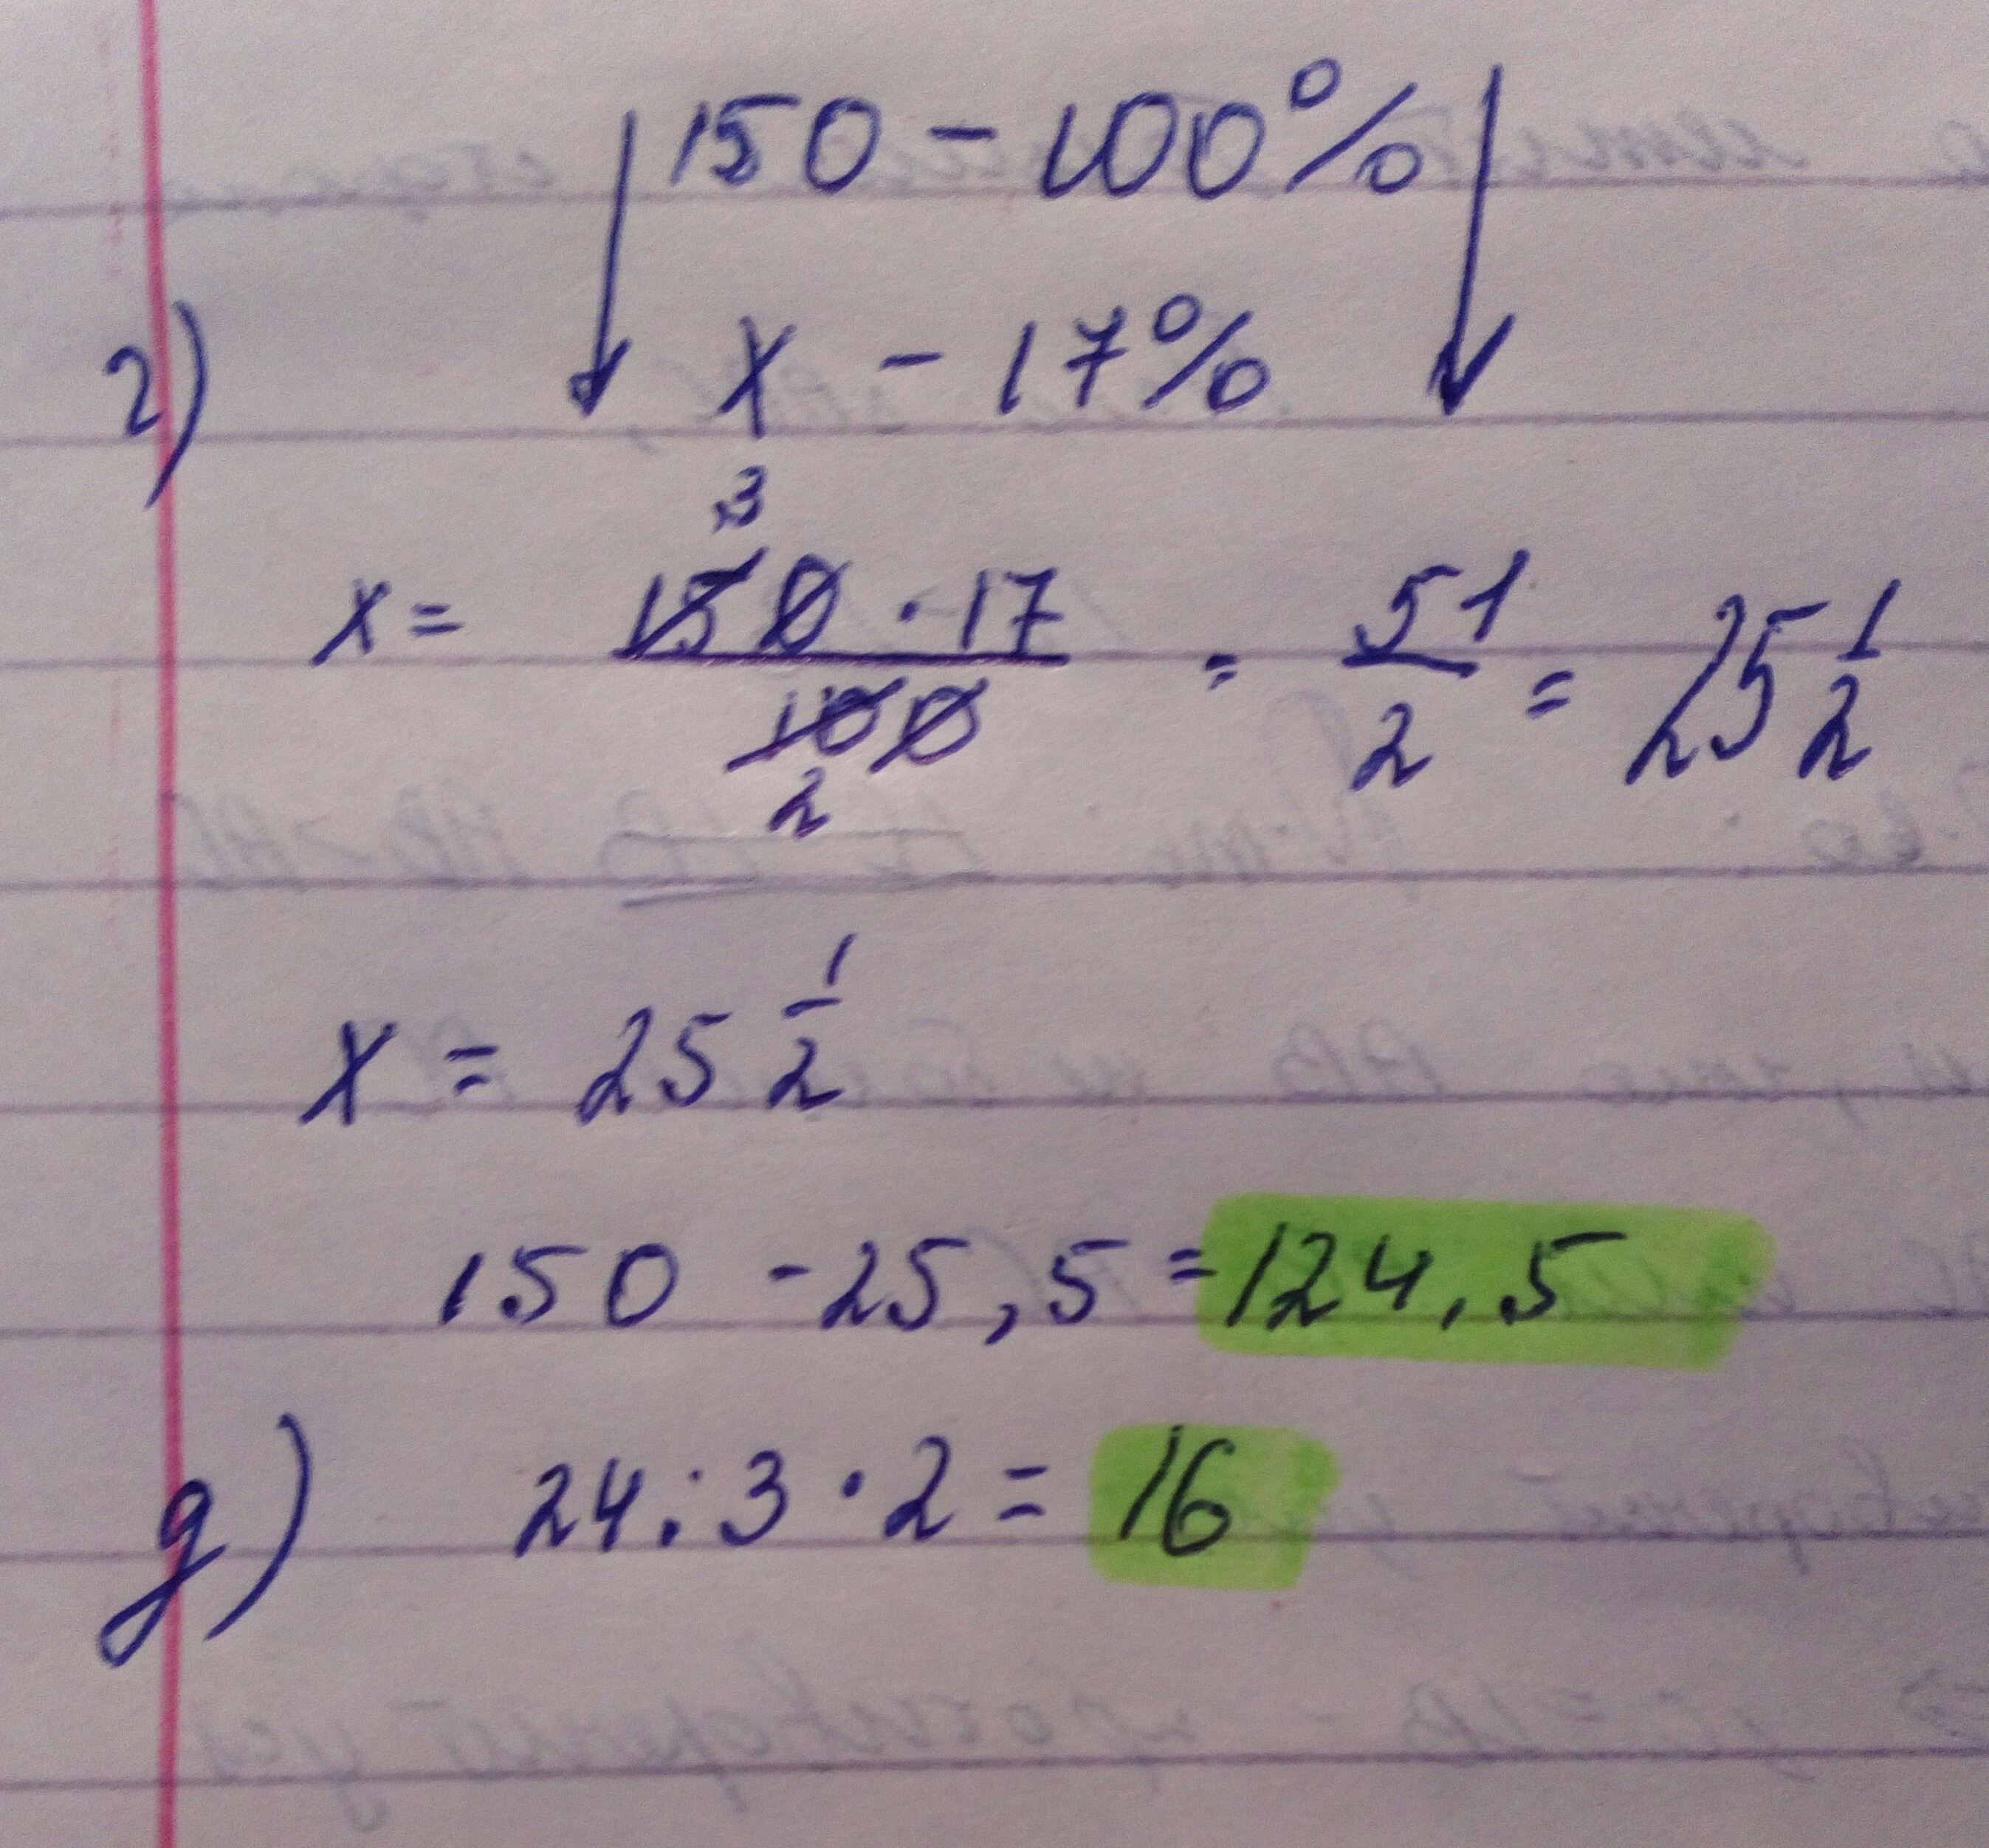 150 - 100%
2) x - 17%
x = 150 · 17 / 100 = 51/2 = 25 1/2
3
2
x = 25 1/2
150 - 25,5 = 124,5
д) 24 : 3 · 2 = 16